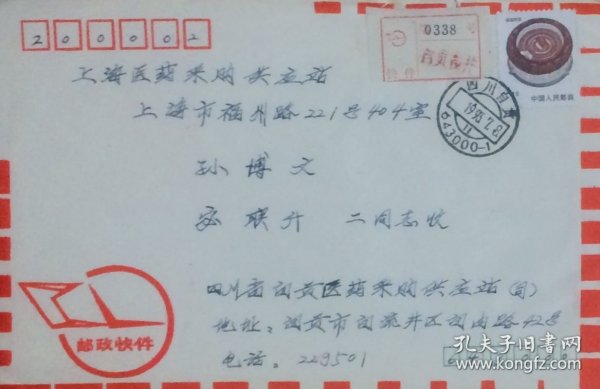 200002
0338
上海医药采购供应站
上海市福州路221号404室
孙博文
宓联升 二同志收
四川省自贡医药采购供应站(司)
地址:自贡市自流井区自由路42号
电话:229501
四川自贡
1995.7.8
11
643000-1
中国人民邮政
邮政快件
孔夫子旧书网
www.kongfz.com